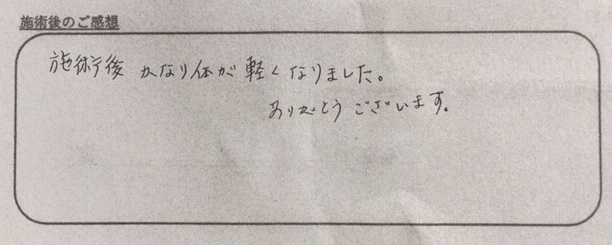 施術後のご感想
施術後 かなり体が軽くなりました。
ありがとうございます。